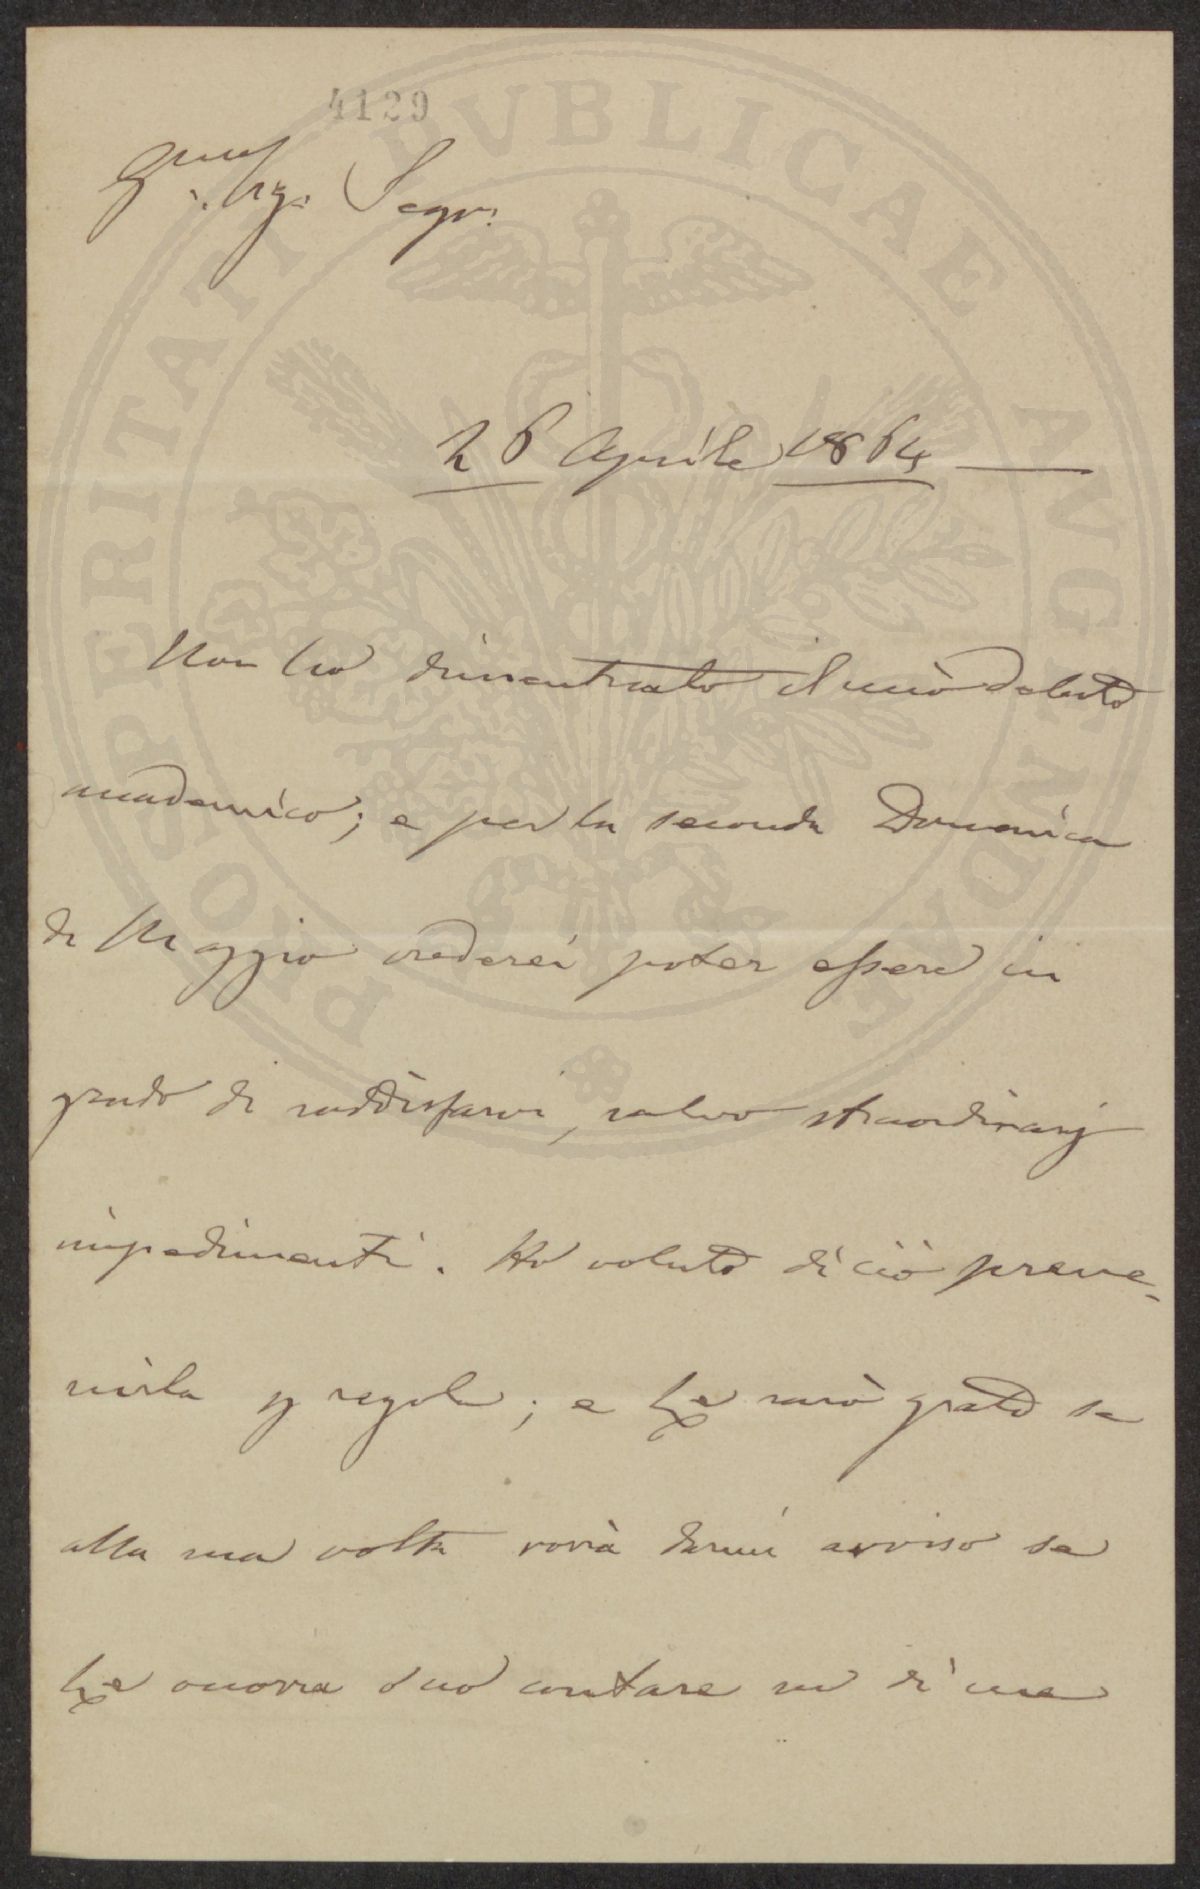 4129
Sig. Segr.
26 Aprile 1864
Non ho dimenticato il mio debito
accademico; e per la seconda Domenica
di Maggio crederei poter essere in
grado di soddisfarvi, salvo straordinarj
impedimenti. Ho voluto di ciò preve-
nirla p regola; e Le sarò grato se
alla sua volta vorrà darmi avviso se
Le occorra o no contare su di me
PROSPERITATI PVBLICAE AVGENDAE